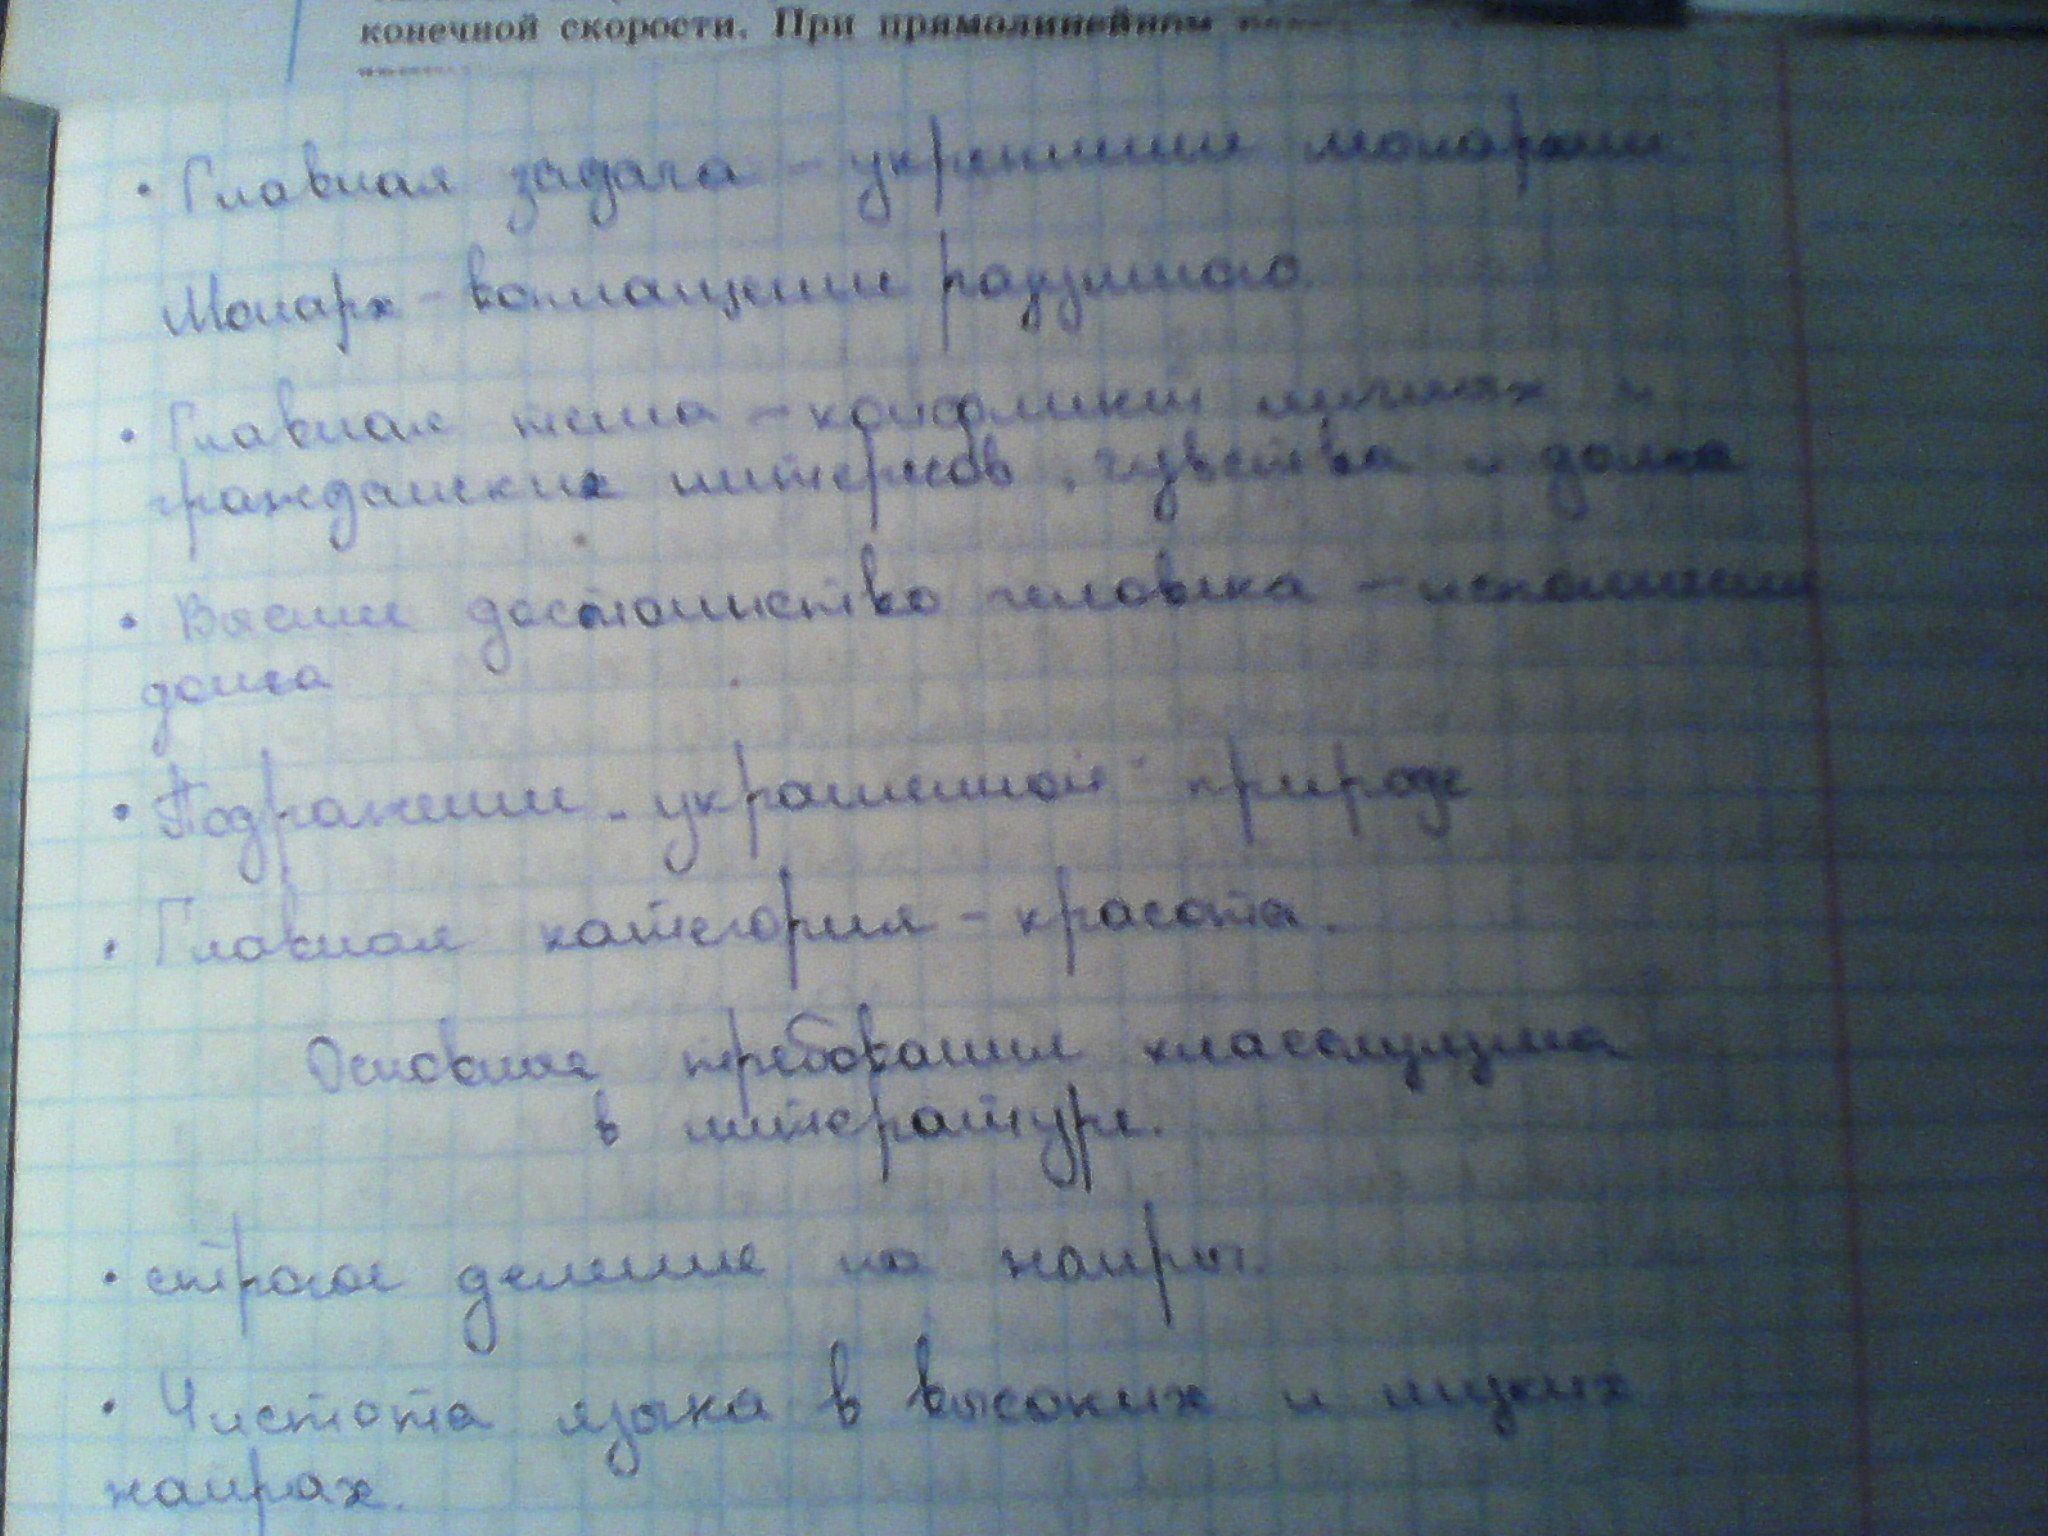 конечной скорости. При прямолинейном
• Главная задача – укрепление монархии
Монарх – воплощение разумного.
• Главная тема – конфликт личных и
гражданских интересов, чувства и долга
• Высшее достоинство человека – исполнение
долга
• Подражание „украшенной" природе
• Главная категория – красота.
Основные требования классицизма
в литературе.
• строгое деление на жанры.
• Чистота языка в высоких и низких
жанрах.